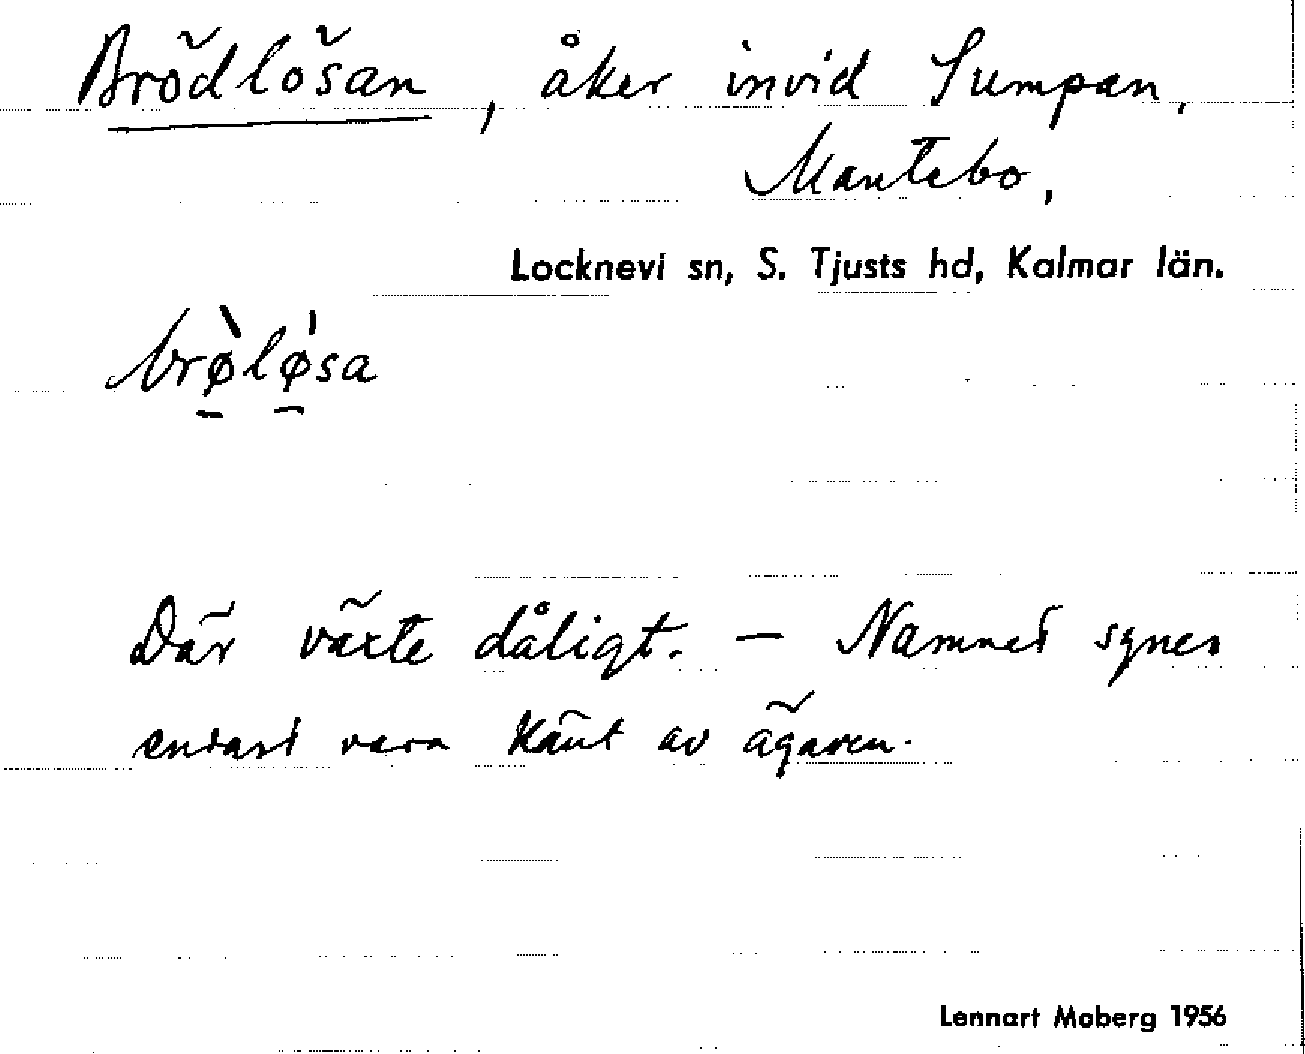 Brödlösan, åker invid Sumpan,
Mantebo,
Locknevi sn, S. Tjusts hd, Kalmar län.
brø̀lø̍sa
Där växte dåligt. — Namnet synes
endast vara känt av ägaren.
Lennart Moberg 1956